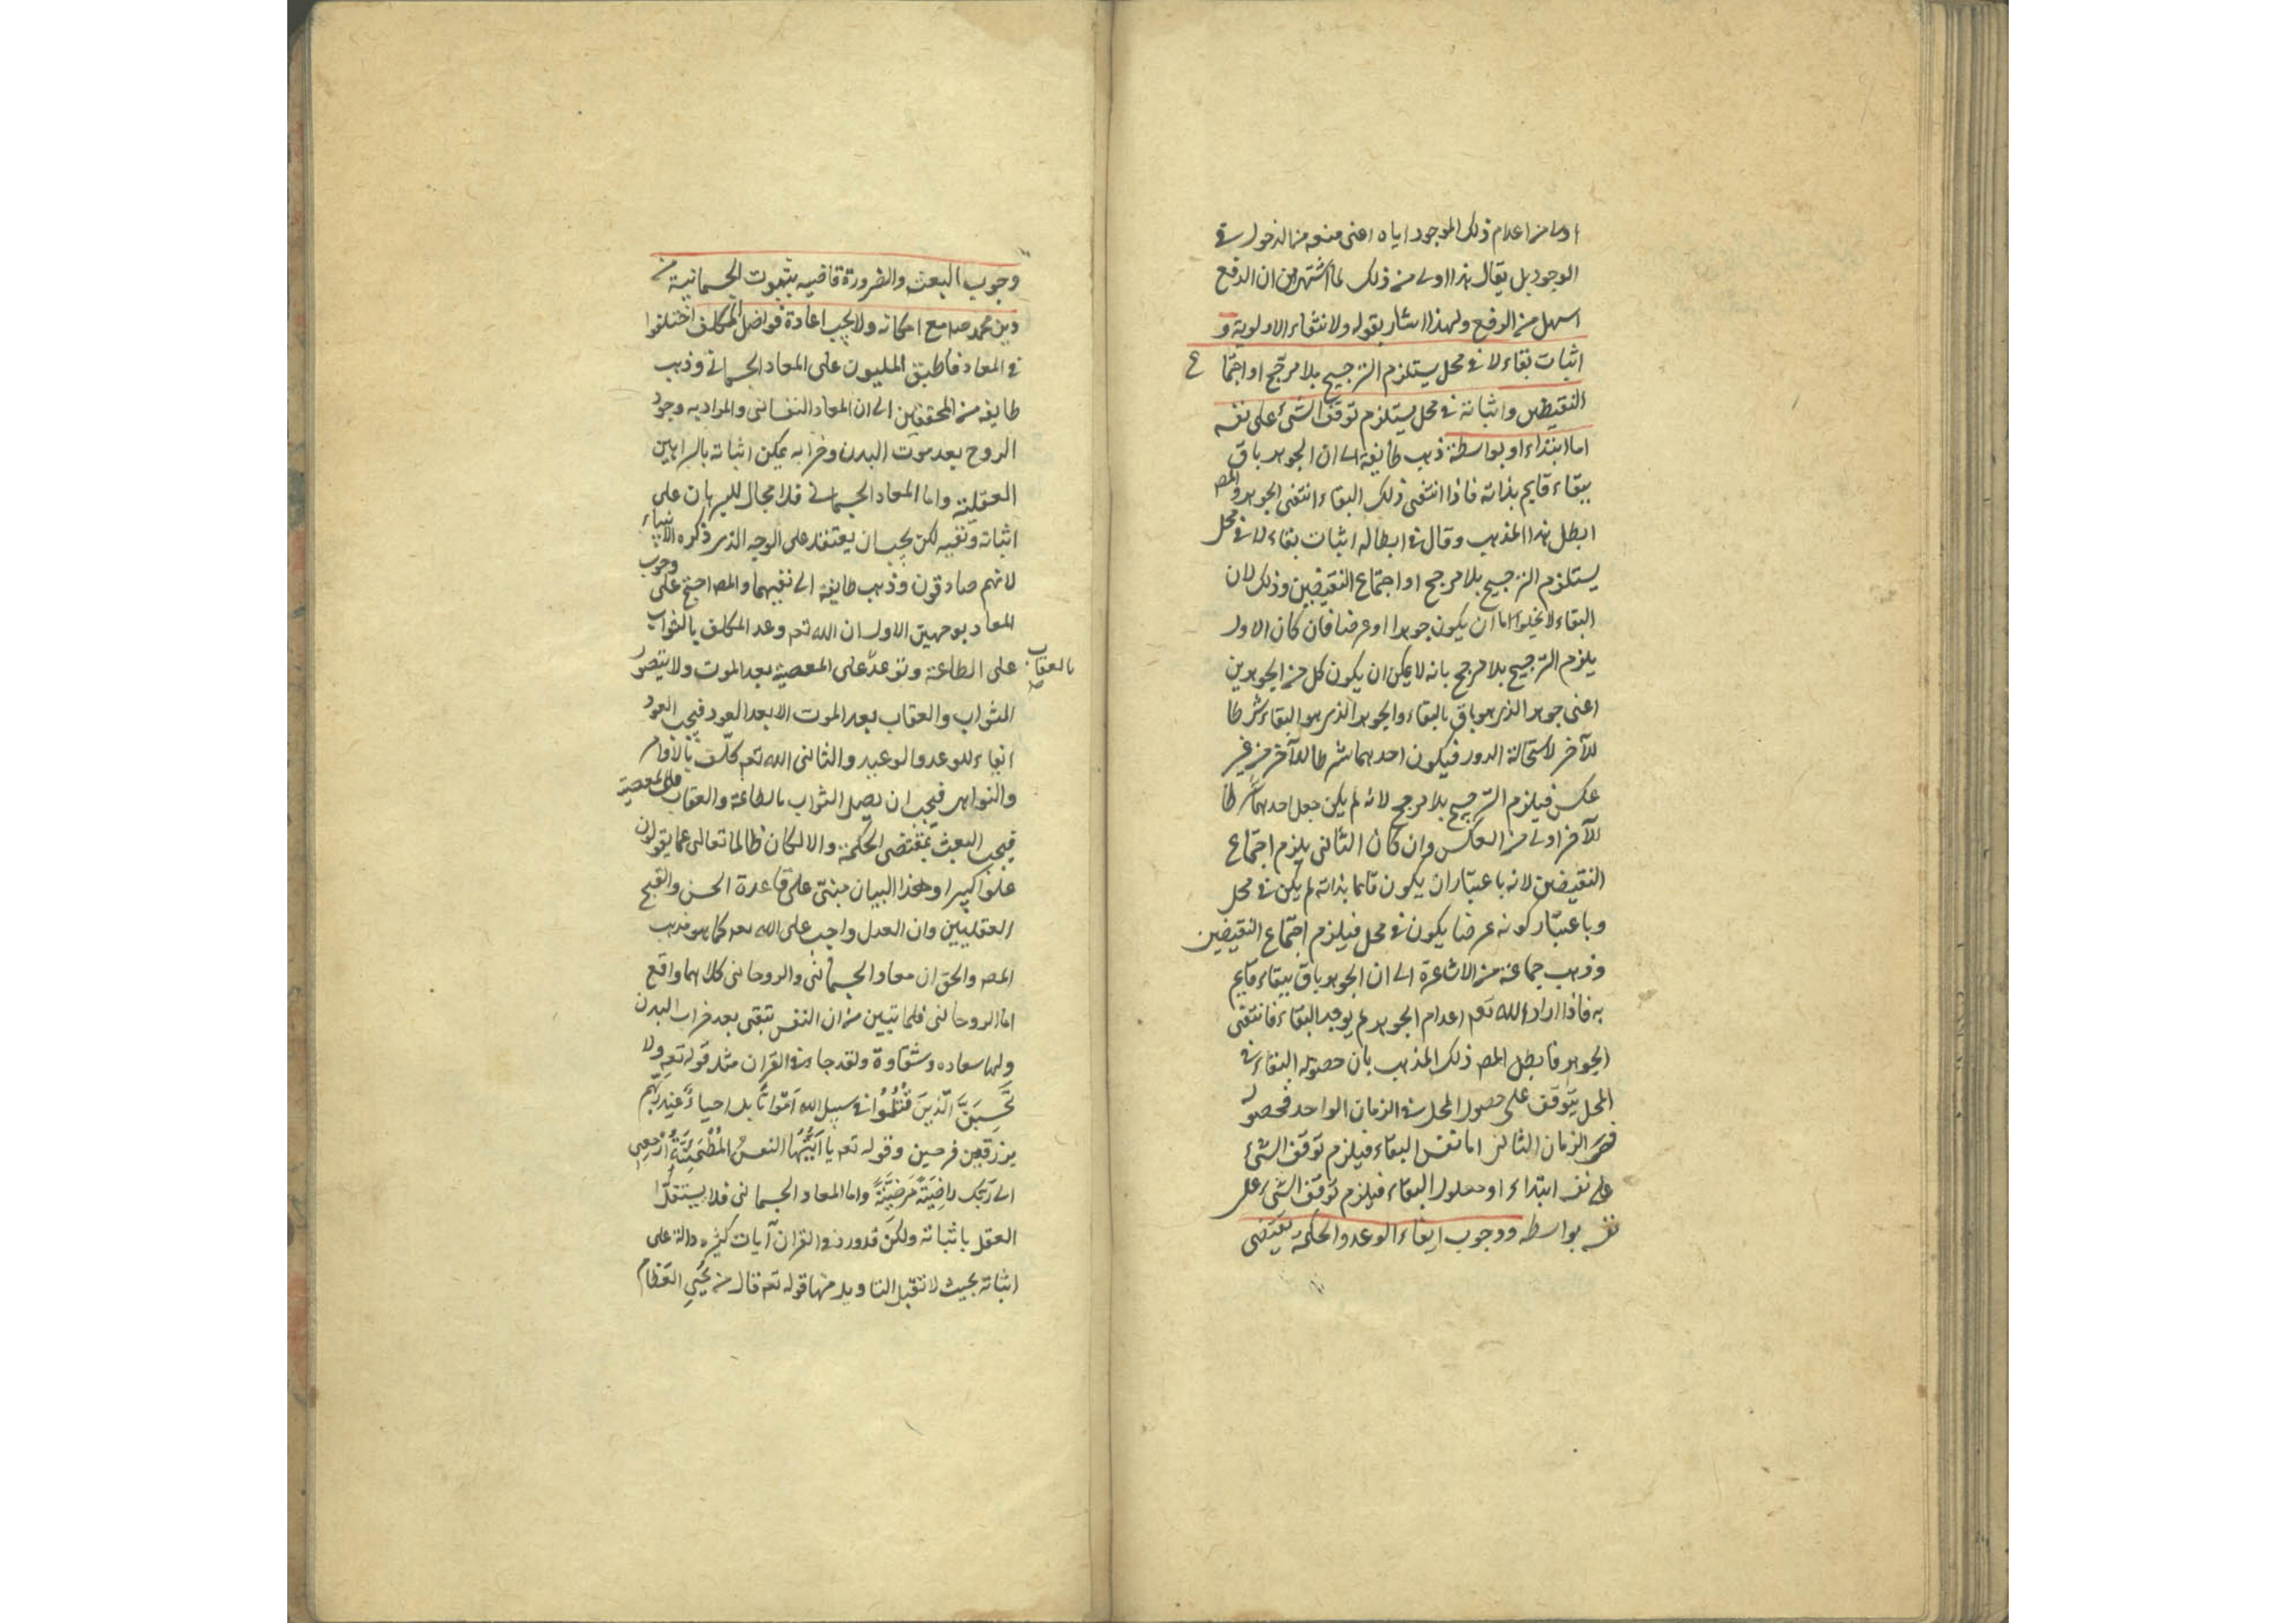 اولى من اعدام ذلك الموجود اياه اعنى منعه من الدخول فى
الوجود بل يقال هذا اولى من ذلك لما اشتهر من ان الدفع
اسهل من الرفع ولهذا اشار بقوله ولانتفاء الاولوية و
اثبات بقاء لا فى محل يستلزم الترجيح بلا مرجح او اجتما ع
النقيضين واثباته فى محل يستلزم توقف الشئ على نفسه
اما ابتداء او بواسطة ذهب طايفة الى ان الجوهر باق
ببقاء قايم بذاته فاذا انتفى ذلك البقاء انتفى الجوهر والمص
ابطل هذا المذهب وقال فى ابطاله اثبات بقاء لا فى محل
يستلزم الترجيح بلا مرجح او اجتماع النقيضين وذلك لان
البقاء لا يخلوا اما ان يكون جوهرا او عرضا فان كان الاول
يلزم الترجيح بلا مرجح بانه لا يمكن ان يكون كل من الجوهرين
اعنى جوهر الذى هو باق بالبقاء والجوهر الذى هو البقاء شرطا
للآخر لاستحالة الدور فيكون احدهما شرطا للآخر من غير
عكس فيلزم الترجيح بلا مرجح لانه لم يكن جعل احدهما شرطا
للآخر اولى من العكس وان كان الثانى يلزم اجتماع
النقيضين لانه باعتبار ان يكون قائما بذاته لم يكن فى محل
وباعتبار كونه عرضا يكون فى محل فيلزم اجتماع النقيضين
وذهب جماعة من الاشاعرة الى ان الجوهر باق ببقاء قايم
به فاذا اراد الله تعم اعدام الجوهر لم يوجد البقاء فانتفى
الجوهر فابطل المص ذلك المذهب بان حصول البقاء فى
المحل يتوقف على حصول المحل فى الزمان الواحد فحصوله
فى الزمان الثانى اما نفس البقاء فيلزم توقف الشئ
على نفسه ابتداء او معلول البقاء فيلزم توقف الشئ على
نفسه بواسطه ووجوب ايفاء الوعد والحكمة يقتضى
وجوب البعث والضرورة قاضيه بثبوت الجسمانية من
دين محمد صلع مع امكانه ولا يجب اعادة فواضل المكلف اختلفوا
فى المعاد فاطبق المليون على المعاد الجسمانى وذهب
طايفه من المحققين الى ان المعاد النفسانى والمراد به وجود
الروح بعد موت البدن وخرابه يمكن اثباته بالبراهين
العقليّة واما المعاد الجسمانى فلا مجال للبرهان على
اثباته ونفيه لكن يجب ان يعتقد على الوجه الذى ذكره الانبياء
لانهم صادقون وذهب طايفة الى نفيهما والمص احتج على وجوب
المعاد بوجهين الاول ان الله تعم وعد المكلف بالثواب
على الطاعة وتوعد على المعصية بعد الموت ولا يتصور
بالعقاب
الثواب والعقاب بعد الموت الا بعد العود فيجب العود
ايفاء للوعد والوعيد والثانى الله تعم كلّف بالاوامر
والنواهى فيجب ان يصل الثواب بالطاعة والعقاب على المعصية
فيجب البعث بمقتضى الحكمة والا لكان ظالما تعالى عما يقولون
علوّا كبيرا وهذا البيان مبنىّ على قاعدة الحسن والقبح
العقليين وان العدل واجب على الله تعم كما هو مذهب
المص والحق ان معاد الجسمانى والروحانى كلاهما واقع
اما الروحانى فلما تبين من ان النفس تبقى بعد خراب البدن
ولها سعاده وشقاوة ولقد جاء فى القران مثل قوله تعم ولا
تَحْسَبَنَّ الَّذِينَ قُتِلُوْا فى سبيل الله اَمْوَاتًا بل احياءٌ عِنْدَ رَبِّهِمْ
يرزقون فرحين وقوله تعم يا اَيَّتُهَا النفسُ الْمُطْمَئِنَّةُ اِرْجِعِى
الى رَبِّكِ رَاضِيَةً مَرْضِيَّةً واما المعاد الجسمانى فلا يستقل
العقل باثباته ولكن قد ورد فى القران آيات كثيره دالة على
اثباته بحيث لا تقبل التاويل منها قوله تعم قال من يُحْيِى العِظَام